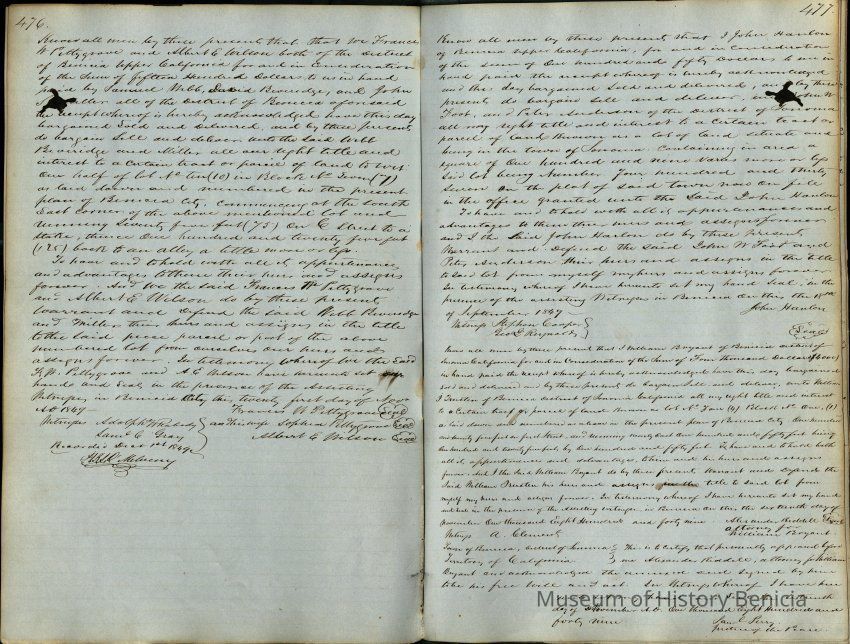 476.
Know all men by these presents that, that we Francis
W Pettygrove and Albert E Wilson both of the District
of Benicia Upper California for and in consideration
of the Sum of fifteen Hundred Dollars to us in hand
paid by Samuel Webb, David Bowridge, and John
Miller all of the District of Benicia aforesaid
the receipt whereof is hereby acknowledged have this day
bargained Sold and delivered, and by these presents
do bargain Sell and deliver unto the Said Webb
and Miller all our right title and
interest to a certain tract or parcel of land to wit.
One half of lot No ten (10) in Block No Seven (7)
as laid down and numbered in the present
plan of Benicia City. Commencing at the South
East corner of the above mentioned lot and
running Seventy five feet (75) On E Street to a
stake, thence One hundred and twenty five feet
(125) back to an alley a little more or less
To have and to hold with all its appurtenances
and advantages to them their heirs and assigns
forever. And we the said Francis W Pettygrove
and Albert E Wilson do by these present
warrant and defend the said Webb
and Miller their heirs and assigns in the title
to the Said piece parcel or part of the above
numbered lot from ourselves our heirs and
assigns forever. In testimony whereof we the Said
F. W. Pettygrove and A E Wilson have hereunto set our
hands and Seal, in the presence of the Attesting
Witnesses, in Benicia City the twenty first day of Nov
AD 1849
Francis W Pettygrove Seal
Witnesses Adolph
and his wife Sophia Pettygrove Seal
Saml C Gray
Albert E Wilson Seal
Recorded Dec 1st 1849
477
Know all men by these present, that I John Hanlon
of Benicia Upper California, for and in consideration
of the sum of One hundred and fifty Dollars to me in
hand paid the receipt whereof is hereby acknowledged
have this day bargained Sold and delivered, and by these
presents do bargain Sell and deliver, unto John W.
Foot, and Peter Anderson of the District of Sonoma
all my right title and interest to a certain tract or
parcel of land known as a lot of land situate and
being in the town of Sonoma Containing in area a
square of One hundred and nine varas more or less
said lot being Number Four hundred and thirty
Seven on the plot of said town now on file
in the office granted unto the Said John Hanlon
To have and to hold with all its appurtenances and
advantages to them their heirs and assigns forever
and I the Said John Hanlon do by these Present,
Warrant and Defend the Said John W Foot and
Peter Anderson their heirs and assigns in the title
to Said lot from myself my heirs and assigns forever
In testimony whereof I have hereunto set my hand Seal, in the
presence of the attesting Witnesses in Benicia On this the 18th
of September 1849
John Hanlon
Witness Stephen Cooper
Seal
Know all men by these present that I William Bryant of Benicia District of
Sonoma California for and in Consideration of the Sum of Four thousand Dollars ($4000)
in hand paid the receipt whereof is hereby acknowledged have this day bargained
Sold and delivered and by these presents do bargain Sell and deliver, unto William
of Benicia District of Sonoma California all my right title and interest
to a certain tract or parcel of land known as lot No Four (4) Block No One, (1)
as laid down and numbered in the present plan of Benicia City.
all its appurtenances and advantages, to him his heirs and assigns
forever. And I the Said William Bryant do by these present, Warrant and defend the
Said William his heirs and assigns in the title to Said lot from
myself my heirs and assigns forever. In testimony whereof I have hereunto set my hand
and seal in the presence of the attesting witness in Benicia on this the sixteenth day of
November One thousand Eight Hundred and forty nine
Witness A. Clement
attorney for
William Bryant
Town of Benicia, District of Sonoma
Territory of California
This is to certify that personally appeared before
me Alexander attorney for William
Bryant and acknowledged the
to be his free will and act. In Witness Whereof I have here
day of November A.D. One thousand Eight Hundred and
forty nine
Justice of the Peace
Museum of History Benicia